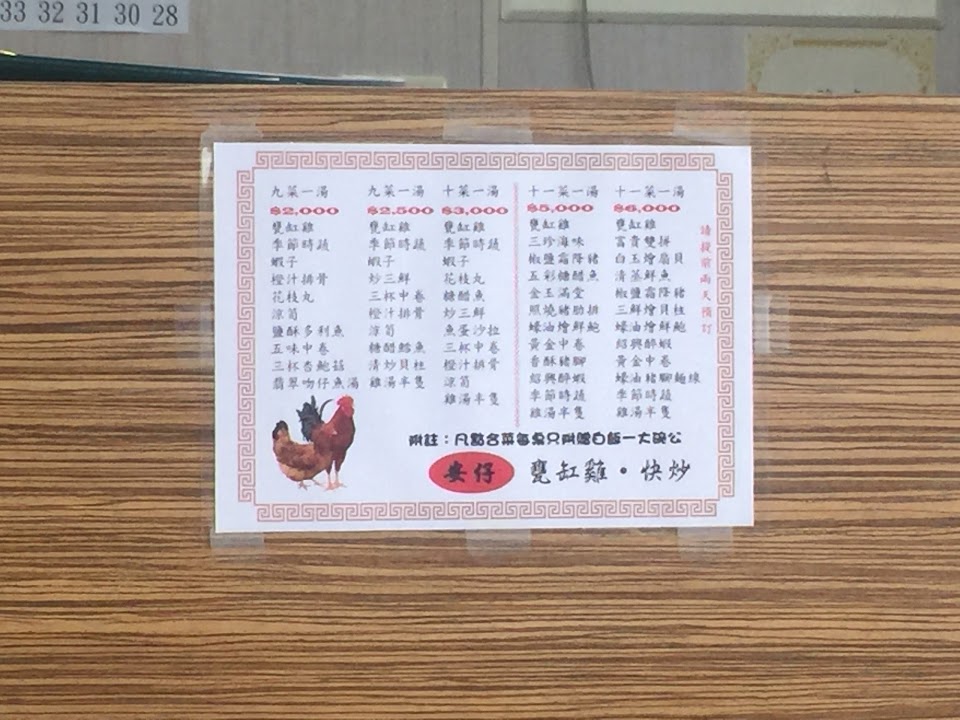 33 32 31 30 28
九菜一湯
$2,000
甕缸雞
季節時蔬
蝦子
橙汁排骨
花枝丸
涼筍
鹽酥多利魚
五味中卷
三杯杏鮑菇
翡翠吻仔魚湯
九菜一湯
$2,500
甕缸雞
季節時蔬
蝦子
炒三鮮
三杯中卷
橙汁排骨
涼筍
糖醋鱈魚
清炒貝柱
雞湯半隻
十菜一湯
$3,000
甕缸雞
季節時蔬
蝦子
花枝丸
糖醋魚
炒三鮮
魚蛋沙拉
三杯中卷
橙汁排骨
涼筍
雞湯半隻
十一菜一湯
$5,000
甕缸雞
三珍海味
椒鹽霜降豬
五彩糖醋魚
金玉滿堂
照燒豬肋排
蠔油燴鮮鮑
黃金中卷
香酥豬腳
紹興醉蝦
季節時蔬
雞湯半隻
十一菜一湯
$6,000
甕缸雞
富貴雙拼
白玉燴扇貝
清蒸鮮魚
椒鹽霜降豬
三鮮燴貝柱
蠔油燴鮮鮑
紹興醉蝦
黃金中卷
蠔油豬腳麵線
季節時蔬
雞湯半隻
請提前兩天預訂
附註：凡點合菜每桌只附贈白飯一大碗公
安仔 甕缸雞・快炒